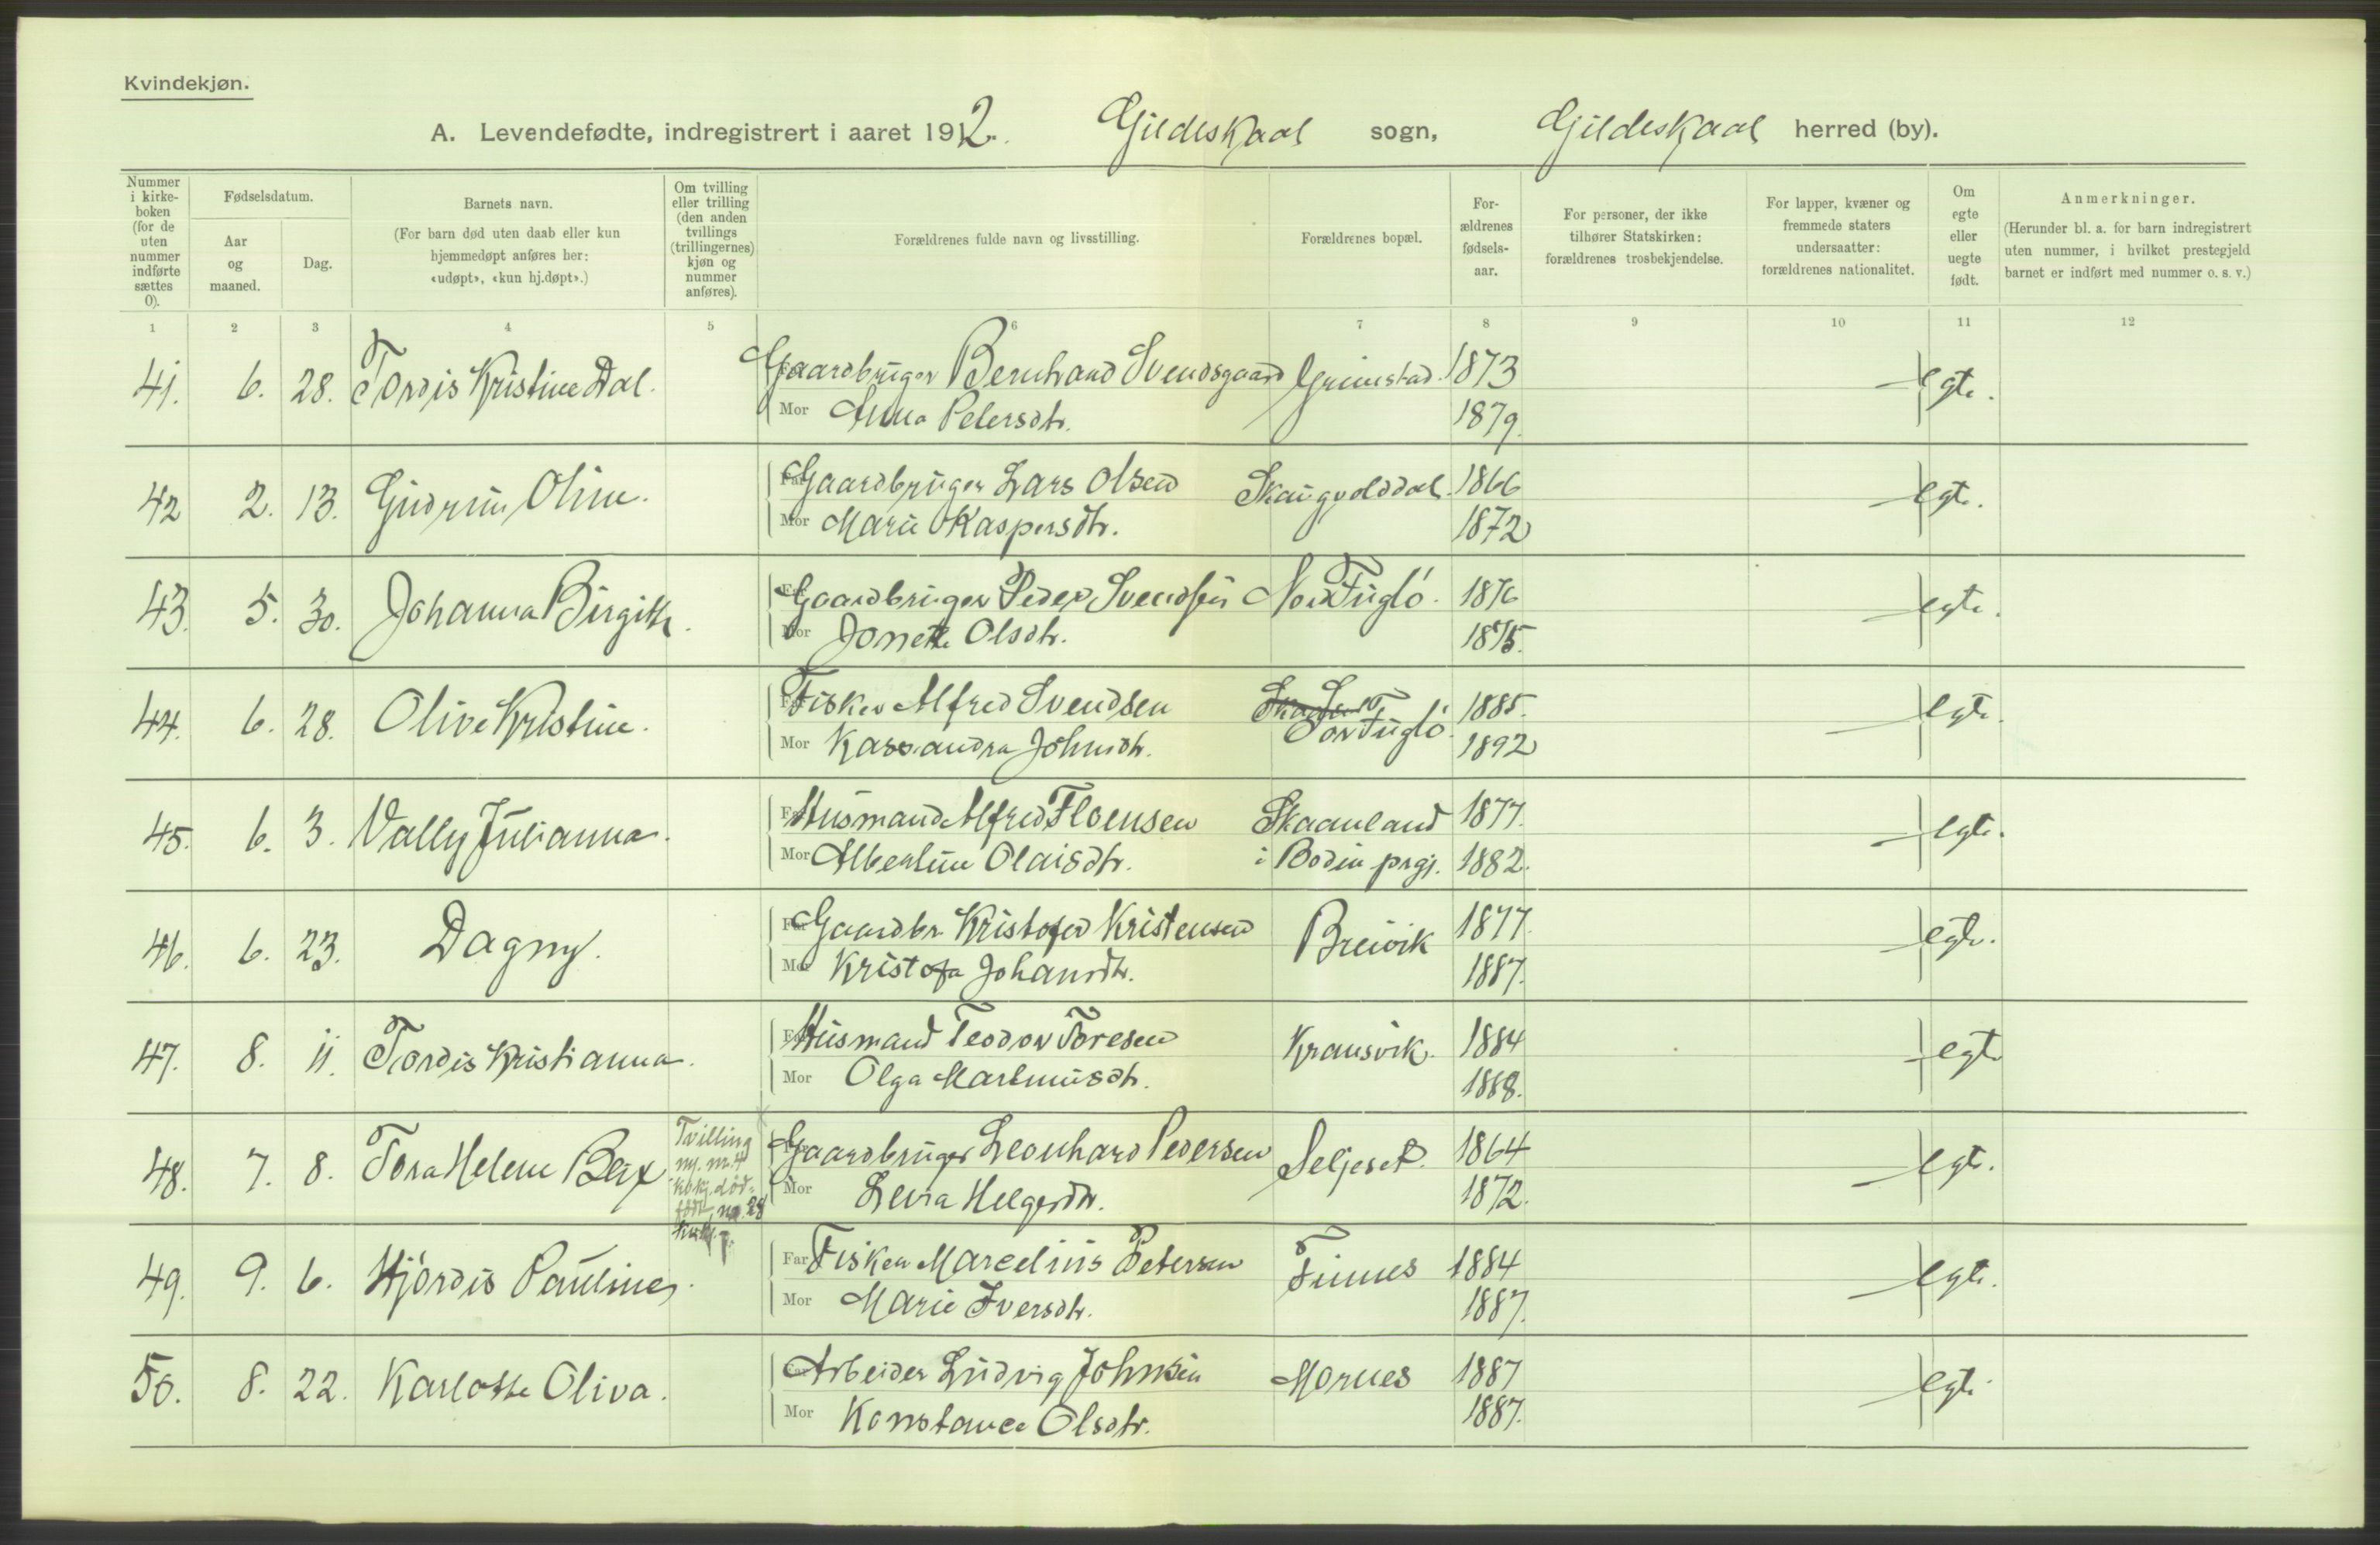 Kvindekjøn.
A. Levendefødte, indregistrert i aaret 1912. Gildeskaal sogn, Gildeskaal herred (by).
Nummer i kirke-boken (for de uten nummer indførte sættes 0).
Fødselsdatum.
Aar og maaned.
Dag.
Barnets navn.
(For barn død uten daab eller kun hjemmedøpt anføres her: «udøpt», «kun hj.døpt».)
Om tvilling eller trilling (den anden tvillings (trillingernes) kjøn og nummer anføres).
Forældrenes fulde navn og livsstilling.
Forældrenes bopæl.
For-ældrenes fødsels-aar.
For personer, der ikke tilhører Statskirken: forældrenes trosbekjendelse.
For lapper, kvæner og fremmede staters undersaatter: forældrenes nationalitet.
Om egte eller uegte født.
Anmerkninger.
(Herunder bl. a. for barn indregistrert uten nummer, i hvilket prestegjeld barnet er indført med nummer o. s. v.)
1 2 3 4 5 6 7 8 9 10 11 12
41. 6. 28. Tordis Kristine Dal. Gaardbruger Bernhard Svendsgaard Grimstad. 1873 egte.
Mor Anna Petersdtr. 1879.
42 2. 13. Gudrun Oline. Far Gaardbruger Lars Olsen Skaugvolddal. 1866 egte.
Mor Marie Kaspersdtr. 1872
43. 5. 30. Johanna Birgitte. Far Gaardbruger Peder Svendsen Nord Fuglö. 1876 egte.
Mor Jonette Olsdtr. 1875.
44. 6. 28. Olive Kristine. Far Fisker Alfred Svendsen 1885. egte.
Mor Kassandra Johnsdtr. Sör Fuglö. 1892
45. 6. 3. Vally Julianna. Far Husmand Alfred Floensen Skaanland 1877. egte.
Mor Albertine Olaisdtr. i Bodin prgj. 1882.
46. 6. 23. Dagny. Far Gaardbr. Kristofer Kristensen Breivik 1877. egte.
Mor Kristofa Johansdtr. 1887.
47. 8. 11. Tordis Kristianna. Far Husmand Teodor Toresen Kransvik. 1884 egte
Mor Olga Martinusdtr. 1888.
48. 7. 8. Tora Helene Berg Tvilling m. nr. 4 Gaardbruger Leonhard Pedersen Seljeset. 1864 egte.
Mor Levia Helgesdtr. 1872.
49. 9. 6. Hjördis Pauline. Far Fisker Marcelius Petersen Finnes 1884 egte.
Mor Marie Iversdtr. 1887.
50. 8. 22. Karlotte Oliva. Far Arbeider Ludvig Johnsen Mornes 1887 egte.
Mor Konstance Olsdtr. 1887.